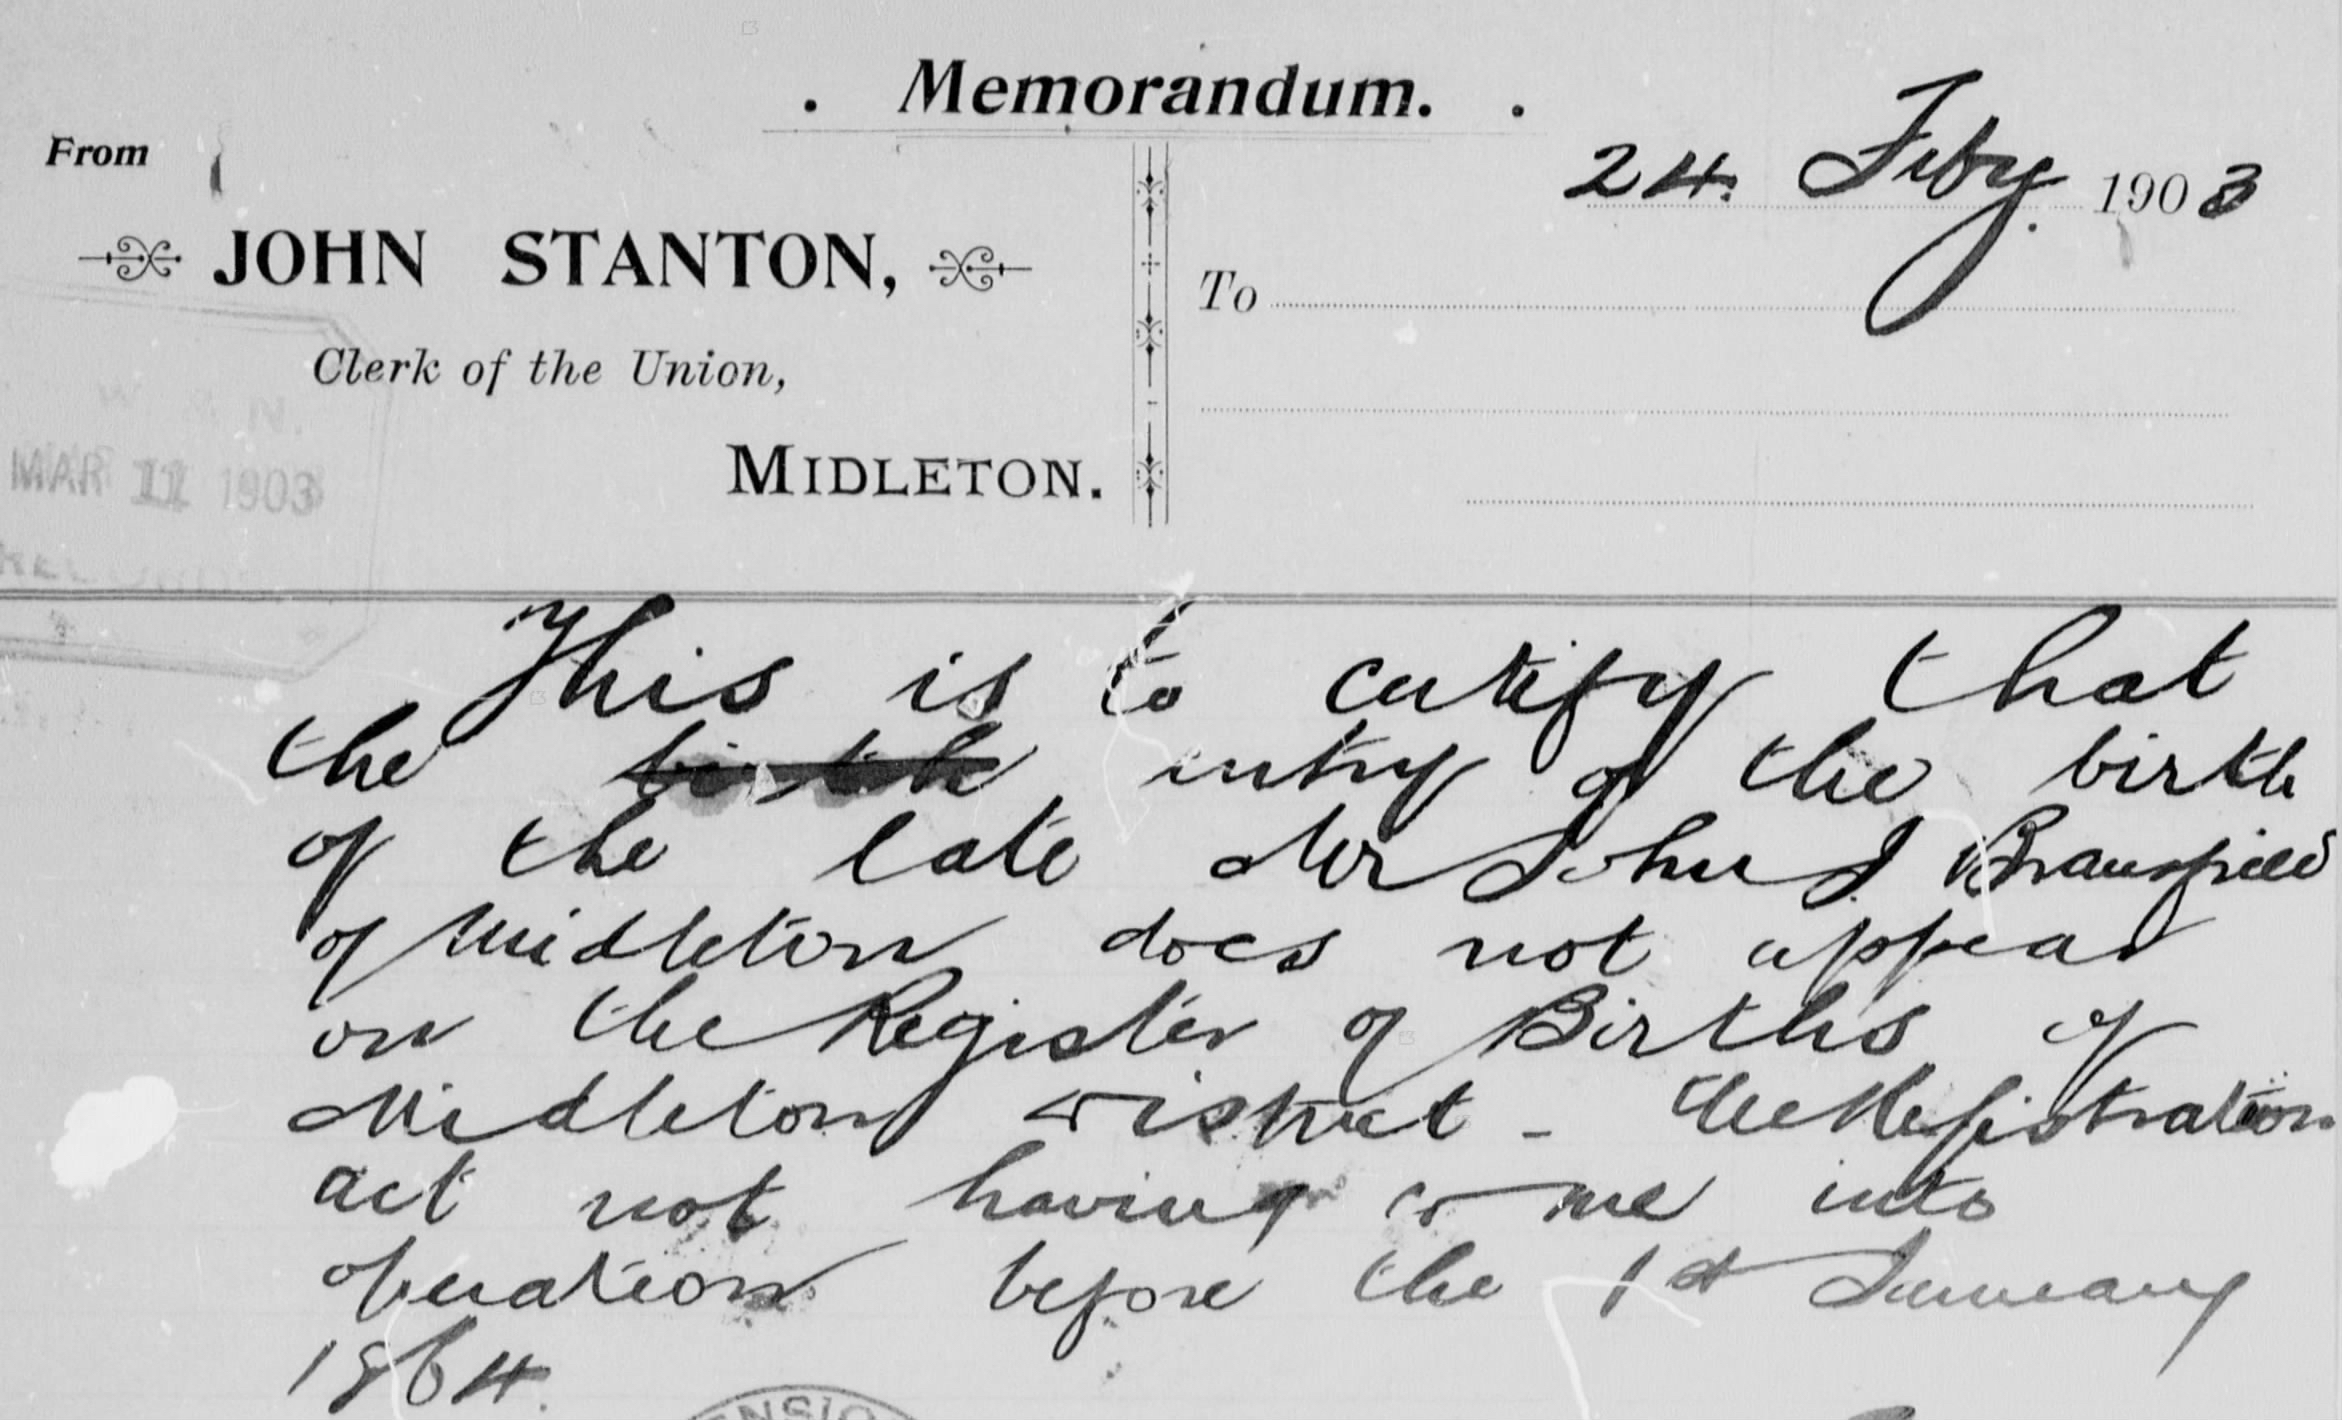 Memorandum.
From
24. Feby. 1903
JOHN STANTON,
To
Clerk of the Union,
MIDLETON.
W & N.
MAR 11 1903
This is to certify that
the birth entry of the birth
of the late Mr John J Bransfield
of Midleton does not appear
on the Register of Births of
Midleton District - the Registration
act not having come into
operation before the 1st January
1864.
ENSIO